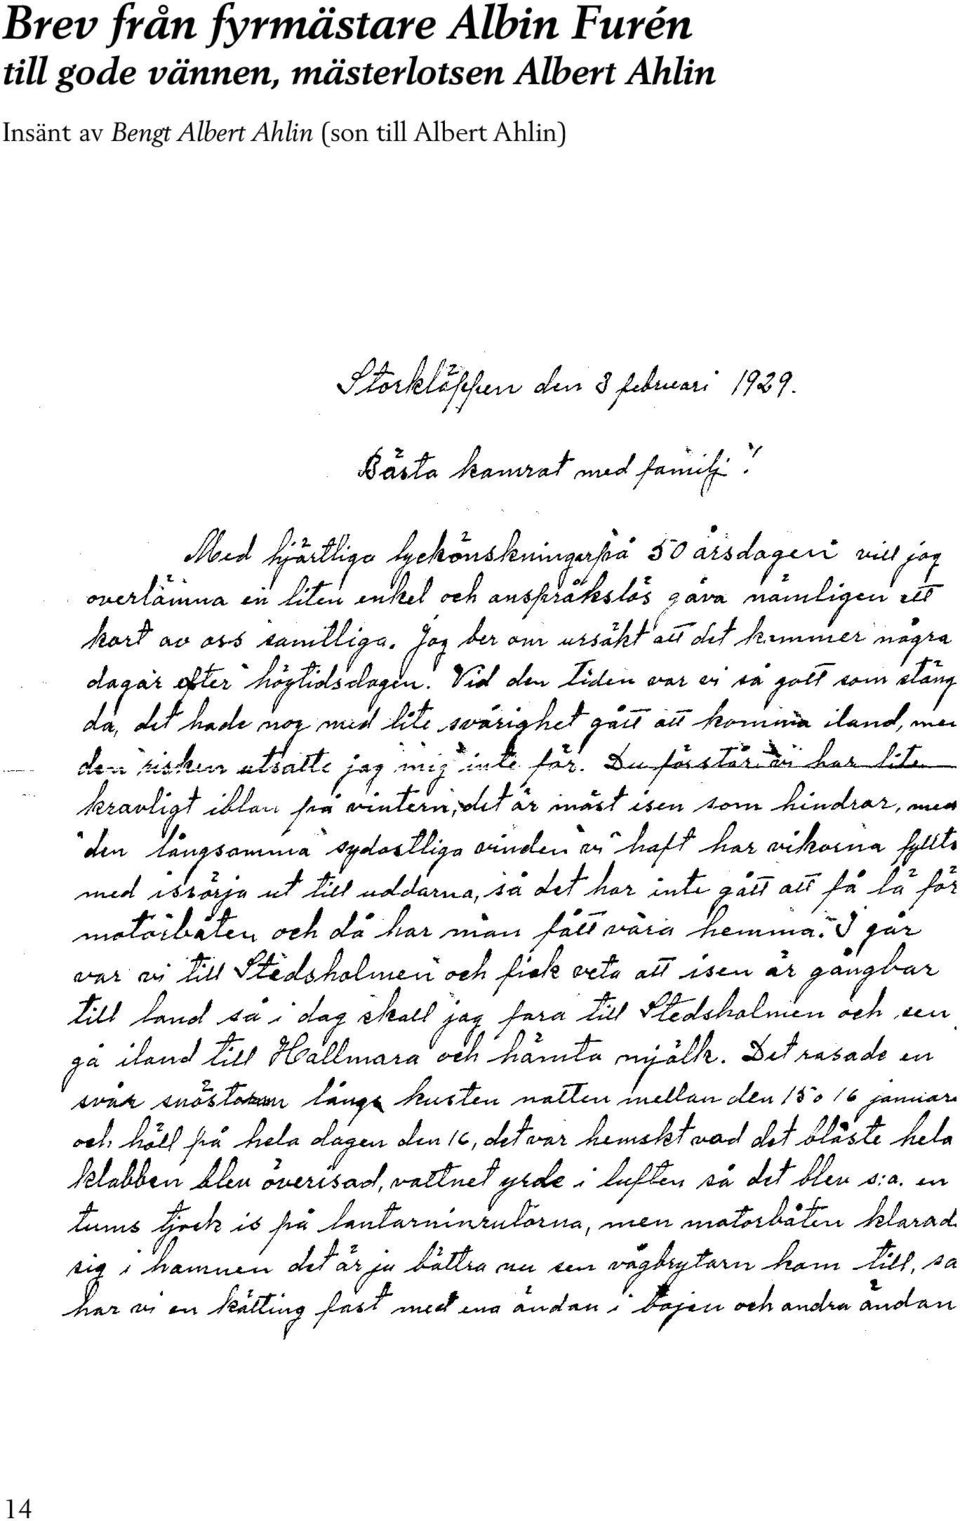 Brev från fyrmästare Albin Furén
till gode vännen, mästerlotsen Albert Ahlin
Insänt av Bengt Albert Ahlin (son till Albert Ahlin)
Storkläppen den 3 februari 1929.
Bästa kamrat med familj!
Med hjärtliga lyckönskningar på 50 årsdagen vill jag
överlämna en liten enkel och anspråkslös gåva nämligen ett
kort av oss samtliga. Jag ber om ursäkt att det kommer några
dagar efter högtidsdagen. Vid den tiden var vi så gott som stäng
da, det hade nog med lite svårighet gått att komma iland, men
den risken utsatte jag mig inte för. Du förstår vi har lite
kravligt iblan på vintern, det är mäst isen som hindrar, med
den långsamma sydostliga vinden vi haft har vikarna fyllts
med issörja ut till uddarna, så det har inte gått att få la för
motorbåten och då har man fått vara hemma. I går
var vi till Stedsholmen och fick veta att isen är gångbar
till land så i dag skall jag fara till Stedsholmen och sen
gå iland till Hallmara och hämta mjälk. Det rasade en
svår snöstorm längs kusten natten mellan den 15 o 16 januari
och höll på hela dagen den 16, det var hemskt vad det blåste hela
klabben blev överisad, vattnet yrde i luften så det blev s:a. en
tums tjock is på lanterninrutorna, men motorbåten klarad
sig i hamnen det är ju bättra nu sen vågbrytarn kom till, sa
har vi en kätting fast med ena ändan i bojen och andra ändan
14